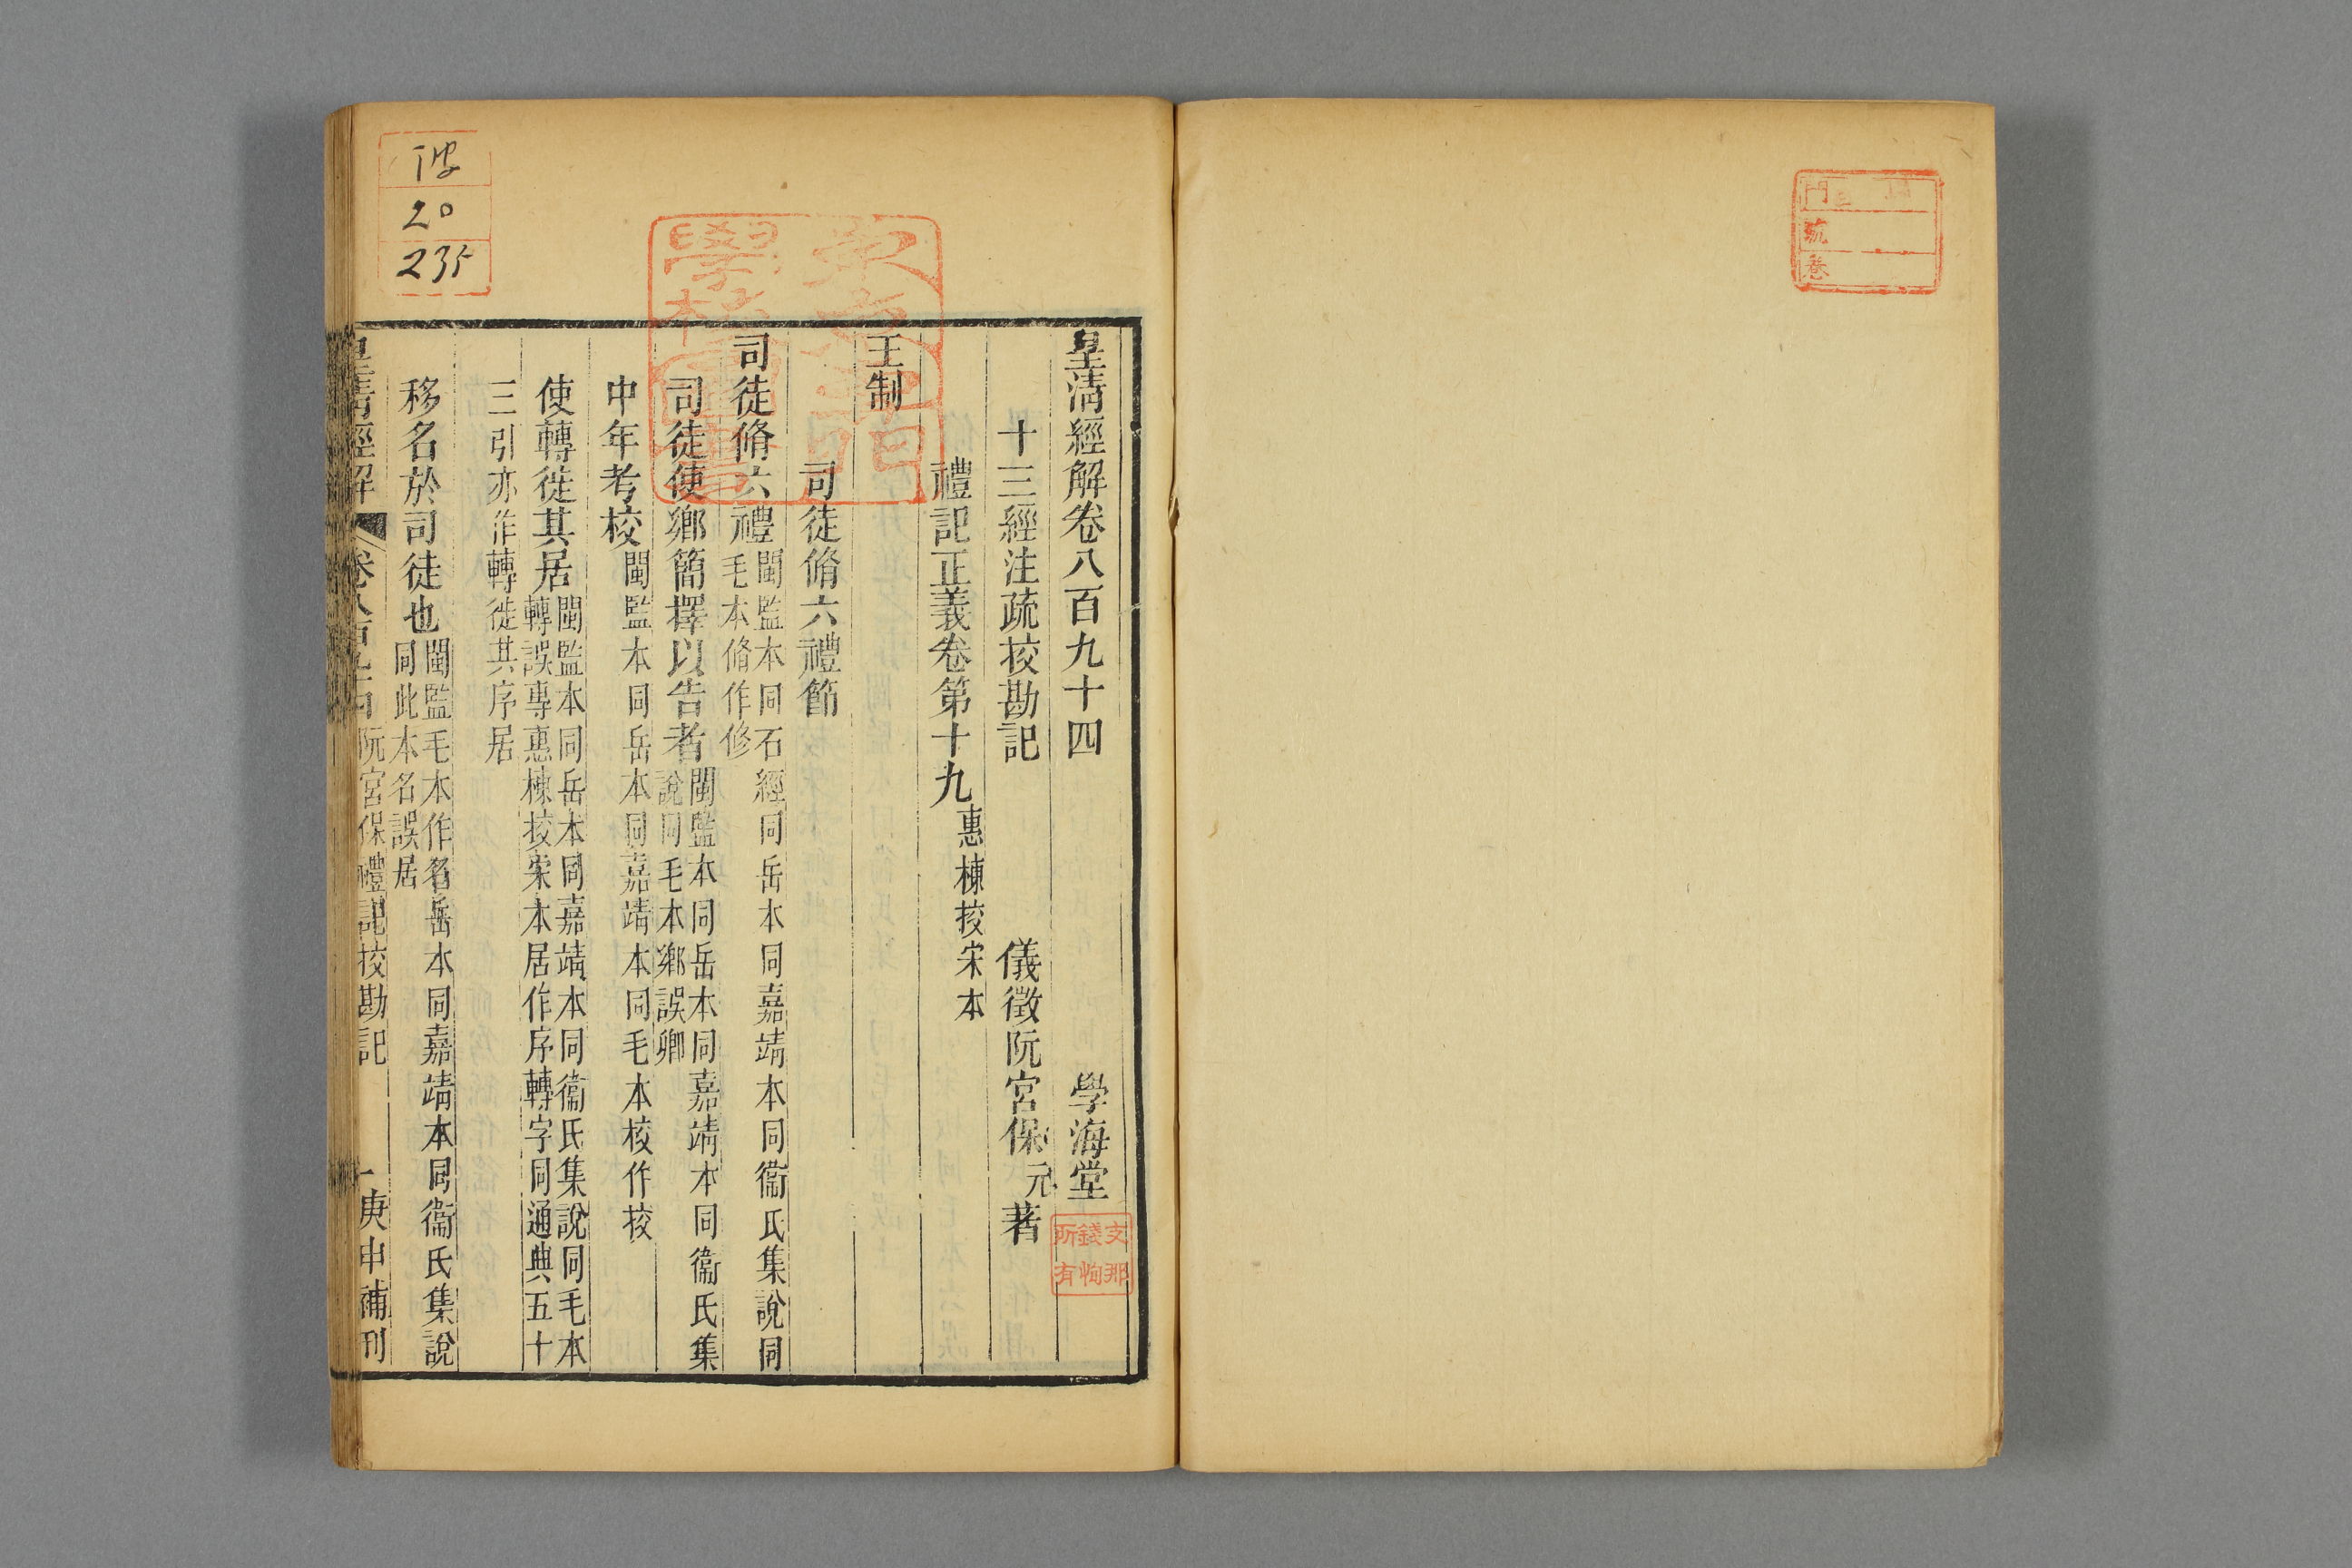 皇清經解卷八百九十四　學海堂
十三經注疏挍勘記　儀徵阮宮保元著
禮記正義卷第十九惠棟挍宋本
王制
司徒脩六禮節
司徒脩六禮閩監本同石經同岳本同嘉靖本同衞氏集說同毛本脩作修
司徒使鄉簡擇以告者閩監本同岳本同嘉靖本同衞氏集說同毛本鄉誤卿
中年考校閩監本同岳本同嘉靖本同毛本校作挍
使轉徙其居閩監本同岳本同嘉靖本同衞氏集說同毛本轉誤專惠棟挍宋本居作序轉字同通典五十
三引亦作轉徙其序居
移名於司徒也閩監毛本作名岳本同嘉靖本同衞氏集說同此本名誤居
皇清經解　卷八百九十四　阮宮保禮記挍勘記　一　庚申補刊
支那錢恂所有
20
235
門
號
卷